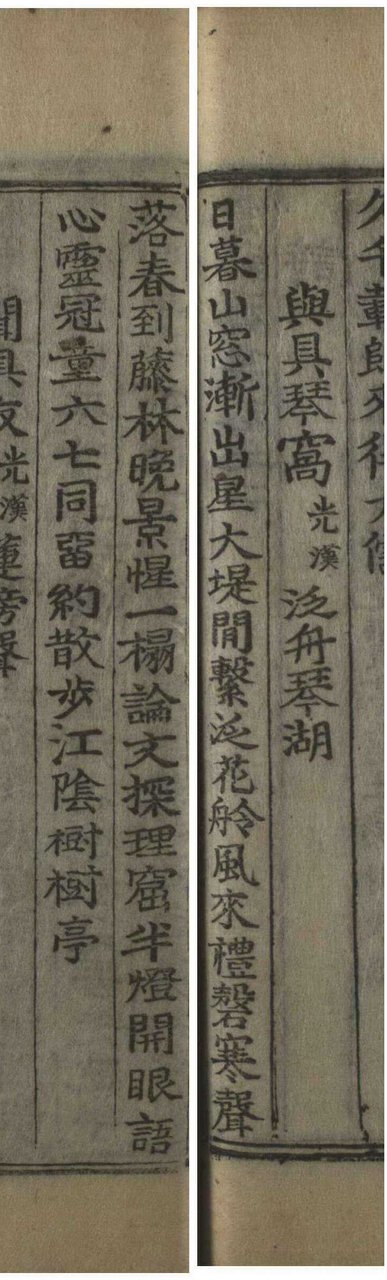 久千載
與具琴窩光漢泛舟琴湖
日暮山窓漸出星大堤閒繫泛花舲風來禮磬寒聲
落春到藤林晚景惺一榻論文探理窟半燈開眼語
心靈冠童六七同畱約散步江陰樹樹亭
聞具友光漢蓮榜聲